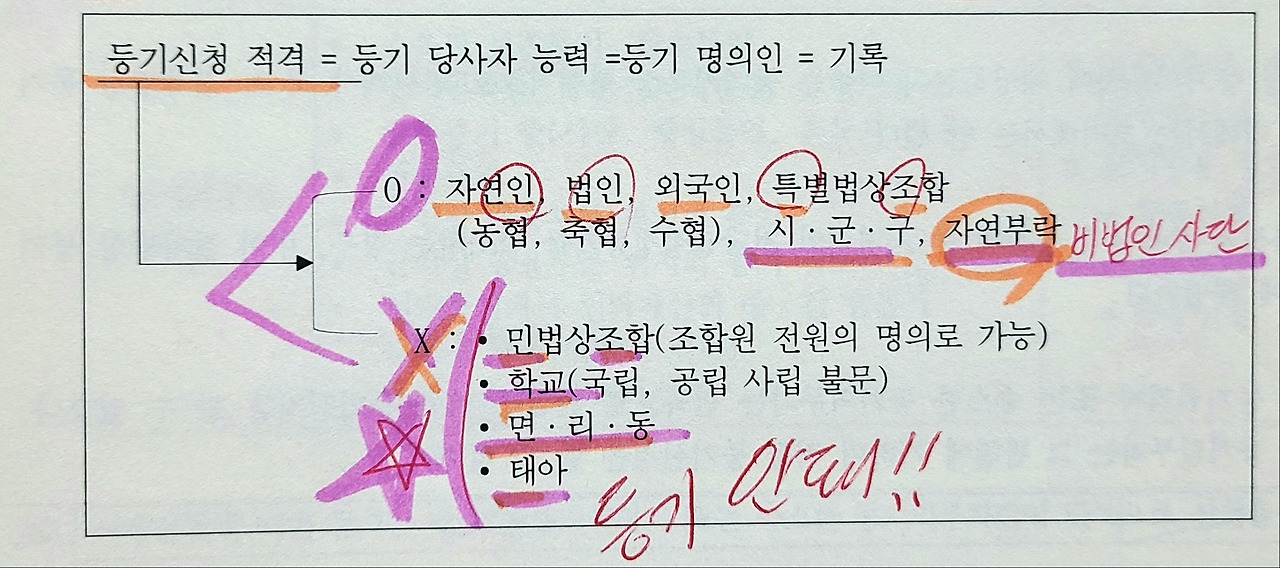 등기신청 적격 = 등기 당사자 능력 =등기 명의인 = 기록
O : 자연인, 법인, 외국인, 특별법상조합
(농협, 축협, 수협), 시·군·구, 자연부락 비법인 사단
X : • 민법상조합(조합원 전원의 명의로 가능)
• 학교(국립, 공립 사립 불문)
• 면·리·동
• 태아
등기 안돼!!